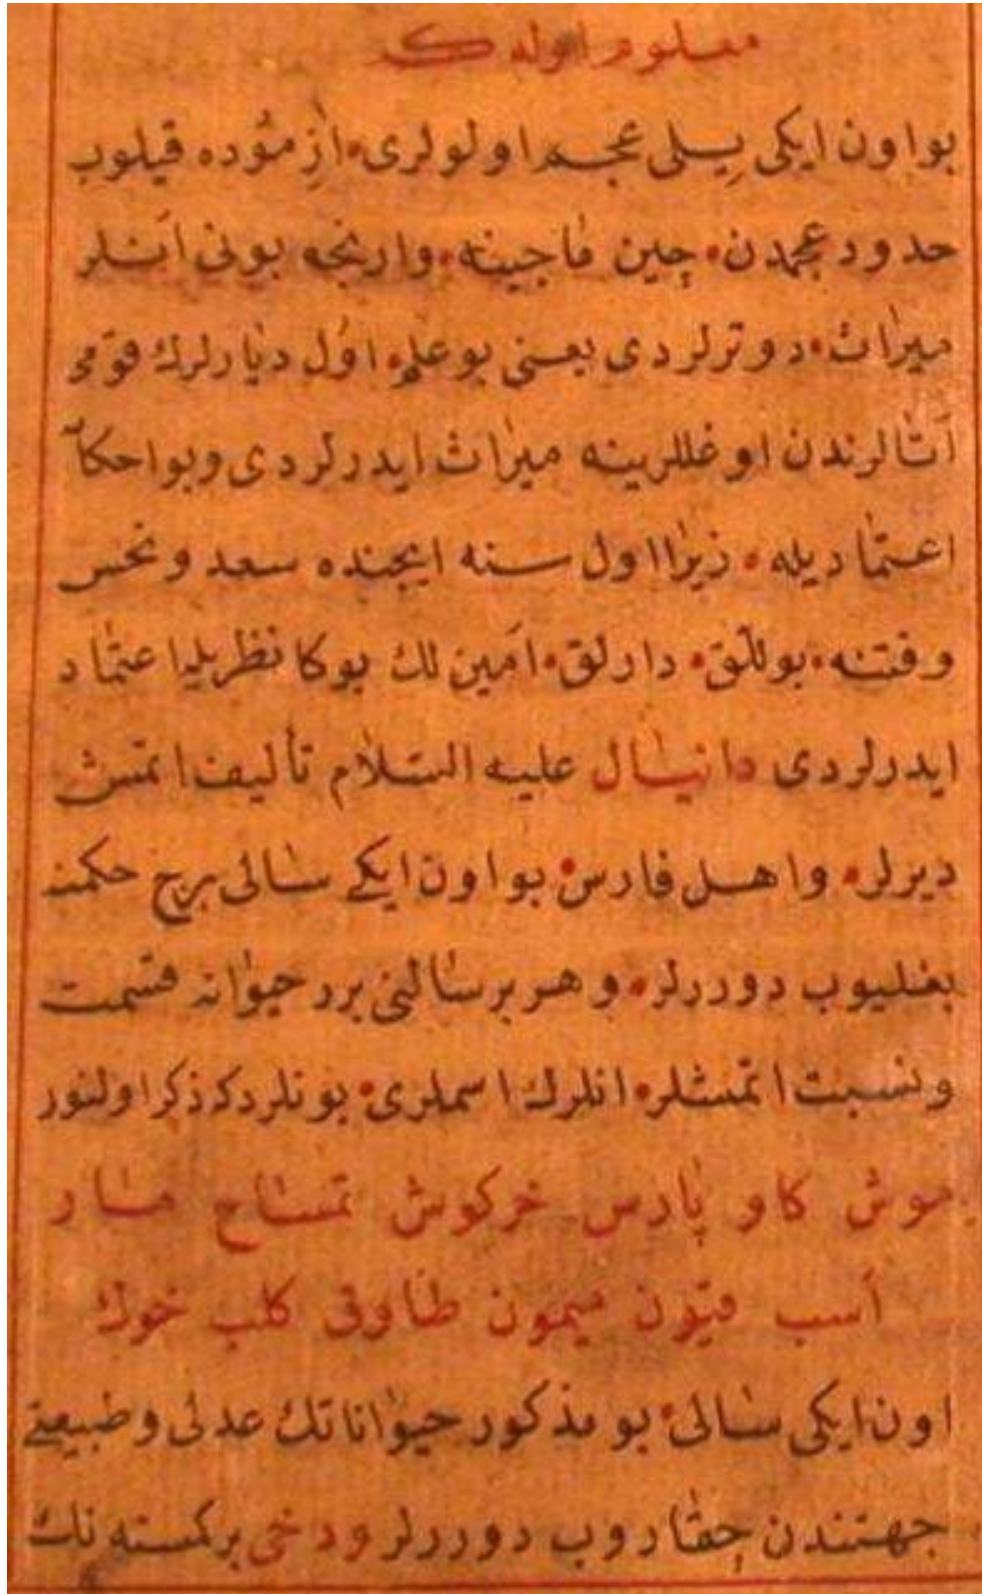 معلوم اوله كه
بو اون ايكى ييلى عجم اولولرى ازموده قيلوب
حدود عجمدن چين ماچينه وارنجه بونى انلر
ميراث دوترلردى يعنى بو علم اول ديارلرك قومى
آتالرندن اوغللرينه ميراث ايدرلردى و بو احكا
اعتماديله زيرا اول سنه ايچنده سعد و نحس
و فتنه بوللق دارلق امين لك بوكا نظريله اعتماد
ايدرلردى دانيال عليه السلام تأليف اتمش
ديرلر و اهل فارس بو اون ايكى سالى برج حكمنه
بغليوب دوررلر و هر بر سالنى برر حيوانه قسمت
و نسبت اتمشلر انلرك اسملرى بونلردركه ذكر اولنور
موش كاو پارس خركوش تمساح مار
اسب قيون ميمون طاوق كلب خوك
اون ايكى سالى بو مذكور حيواناتك عدلى و طبيعتى
جهتندن چقاروب دوررلر و دخى بر كمسنه نك